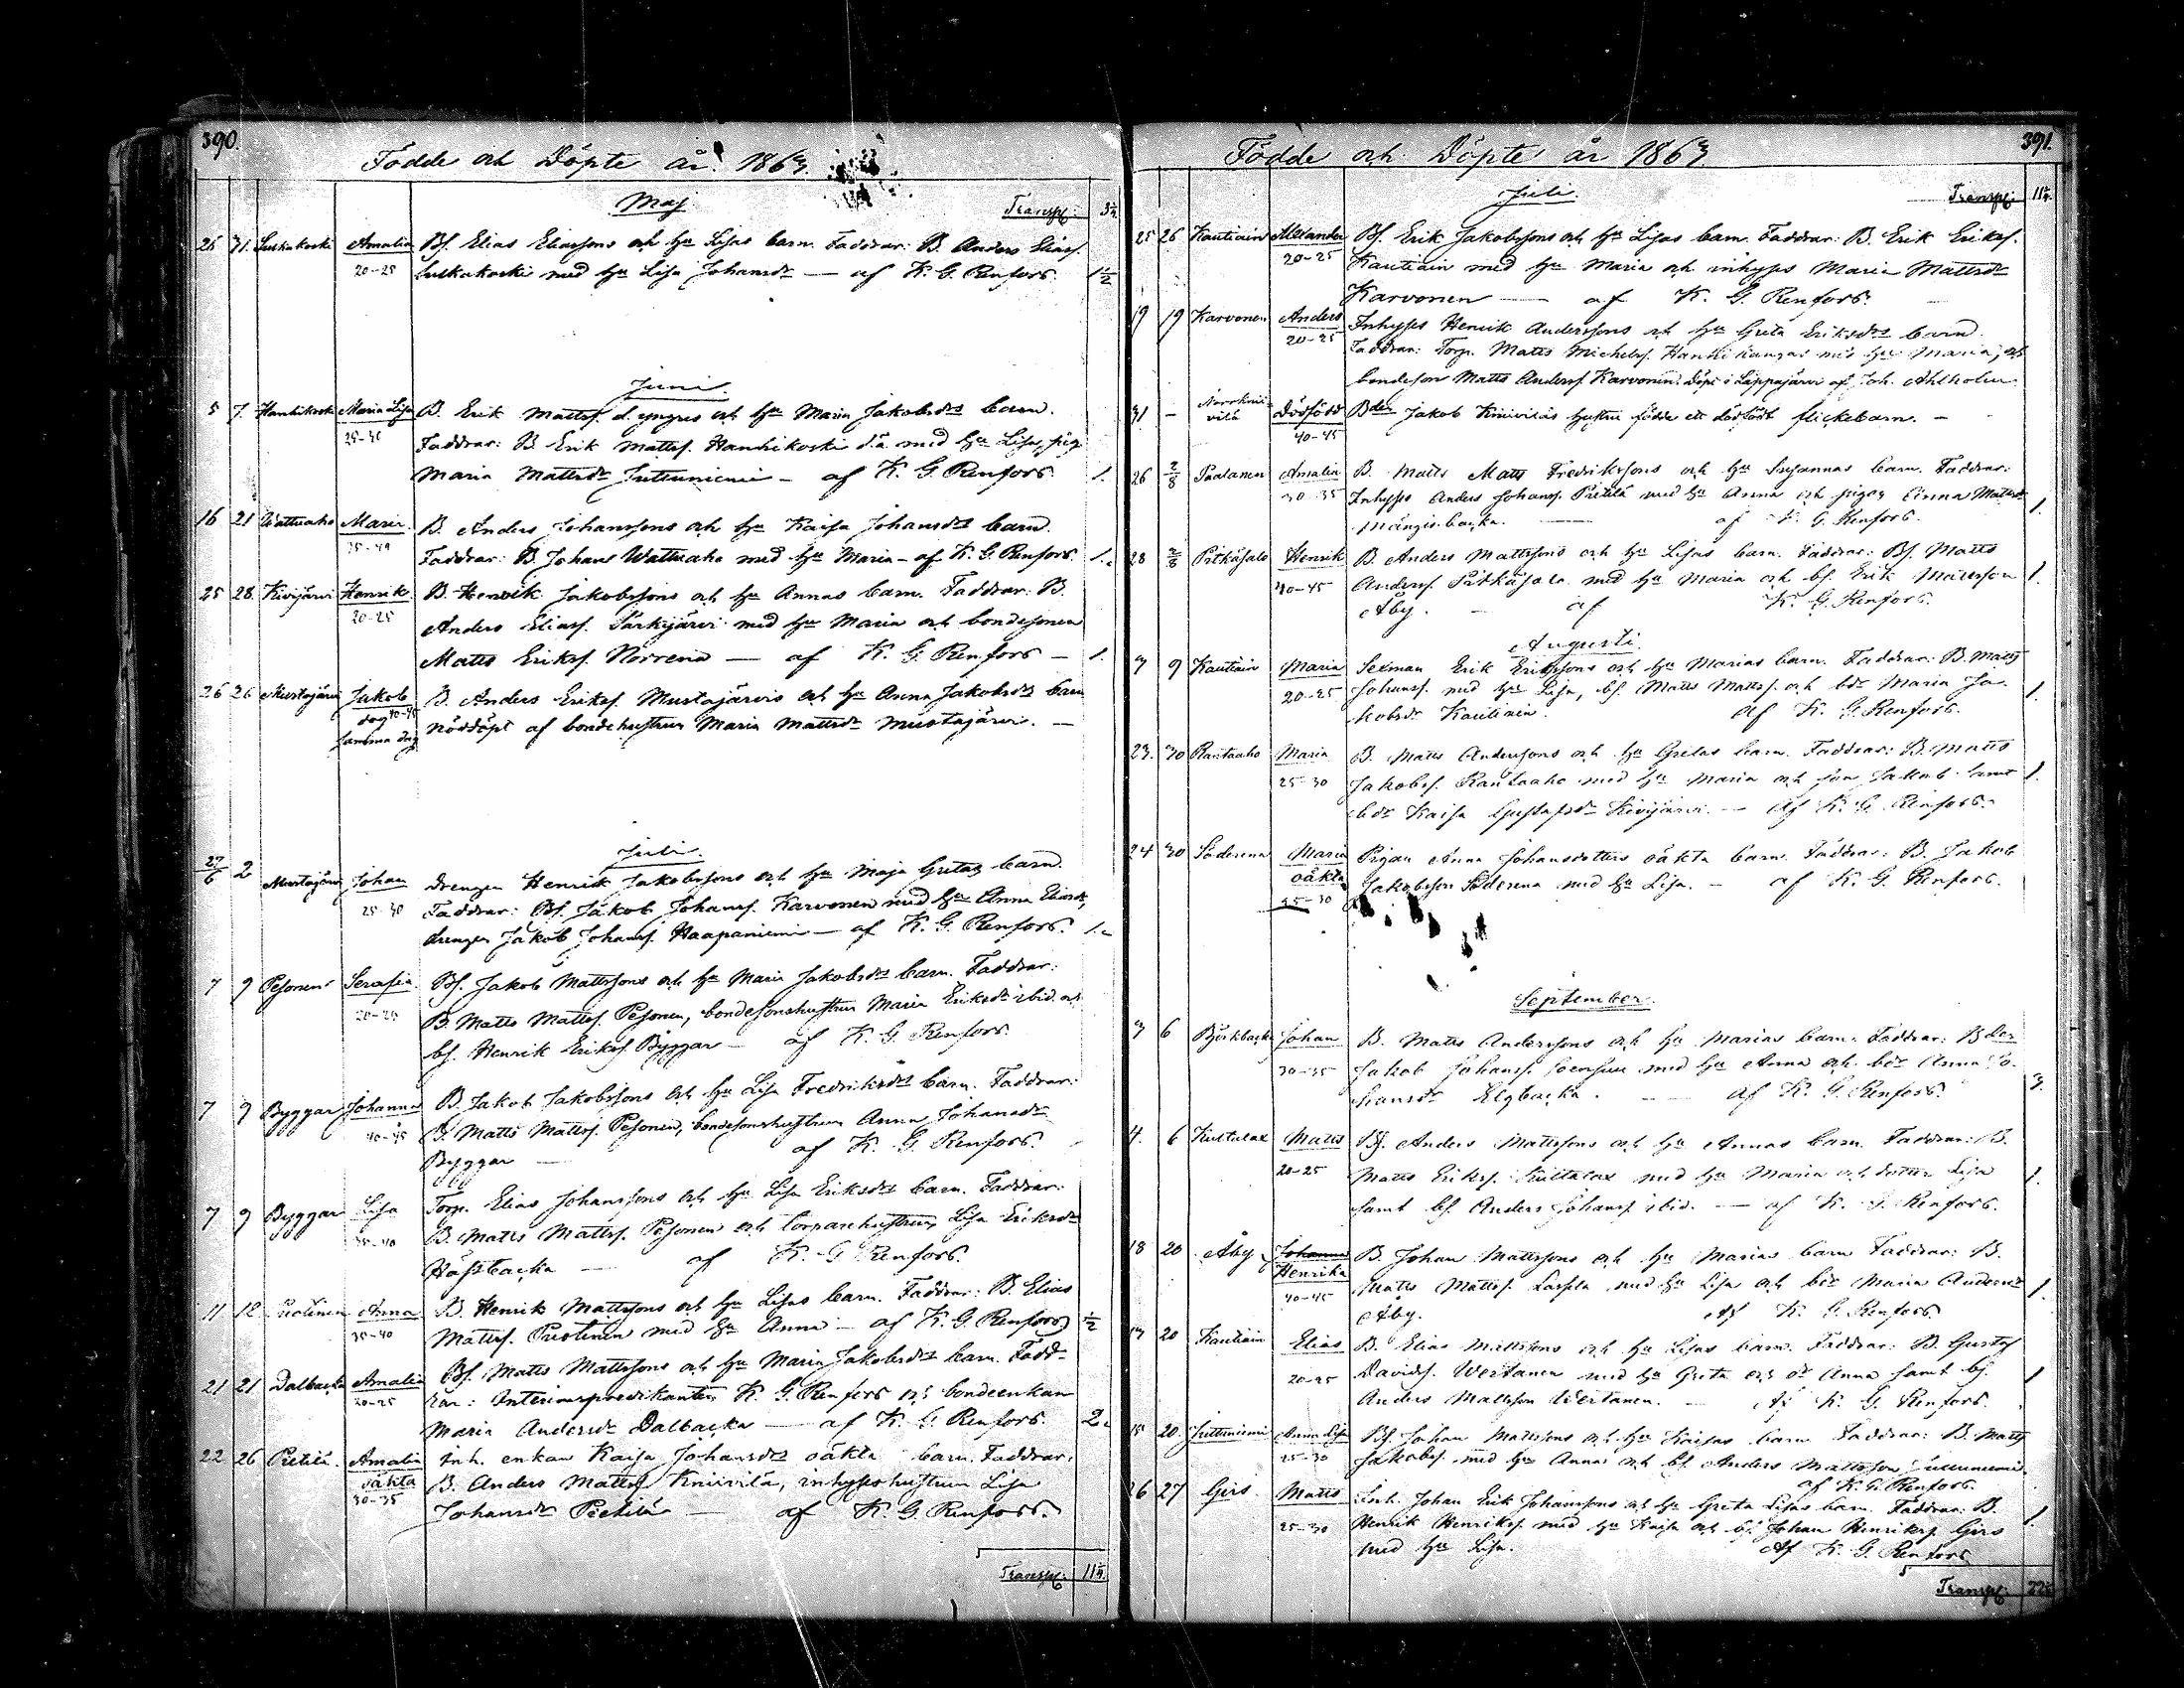 390.
Födde och Döpte år 1863.
Maj
Transp: 3¼
25 31. Luskakoski Amalia Bs. Elias Eliassons och hu Lisas barn. Faddrar: B. Anders Eliass.
20-25 Luskakoski med hu Lisa Johansdr — af K. G. Renfors. 1½
Juni
5 7. Hanhikoski Maria Lisa B. Erik Mattss. d. yngres och hu Maria Jakobsdrs barn.
Faddrar: B Erik Mattss. Hanhikoski d.ä. med hu Lisa, pig.
Maria Mattsdr Juttuniemi — af K. G. Renfors. 1.
16 21 Wattuaho Maria B. Anders Johanssons och hu Kaisa Johansdrs barn.
Faddrar: B Johan Wattuaho med hu Maria — af K. G. Renfors. 1.
25 28. Kivijärvi Henrik B. Henrik Jakobssons och hu Annas barn. Faddrar: B.
20-25 Anders Eliass. Särkijärvi med hu Maria och bondesonen
Matts Erikss. Norrena — af K. G. Renfors — 1.
26 26 Mustajärvi Jakob B. Anders Erikss. Mustajärvis och hu Anna Jakobsdrs barn
dog 40-45 samma dag nöddöpt af bondehustrun Maria Mattsdr Mustajärvi. —
Juli.
27/6 2 Mustajärvi Johan Drengen Henrik Jakobssons och hu Maja Gretas barn.
25-30 Faddrar: Bs. Jakob Johanss. Karvonen med hu Anna Eliasdr,
drengen Jakob Johanss. Haapaniemi — af K. G. Renfors. 1.
7 9 Pesonen Serafia Bs. Jakob Mattssons och hu Maria Jakobsdrs barn. Faddrar:
20-25 B. Matts Mattss. Pesonen, bondesonshustrun Maria Eriksdr ibid. och
bs. Henrik Erikss. Byggar — af K. G. Renfors.
7 9 Byggar Johanna B. Jakob Jakobssons och hu Lisa Fredriksdrs barn. Faddrar:
40-45 B. Matts Mattss. Pesonen, bondesonshustrun Anna Johansdr
Byggar — af K. G. Renfors.
7 9 Byggar Lisa Torp. Elias Johanssons och hu Lisa Eriksdrs barn. Faddrar:
35-40 B. Matts Mattss. Pesonen och torparehustrun Lisa Eriksdr
— af K. G. Renfors.
11 12 Puotinen Anna B. Henrik Mattssons och hu Lisas barn. Faddrar: B. Elias
35-40 Mattss. Puotinen med hu Anna — af K. G. Renfors ½
21 21 Dalbacka Amalia Bs. Matts Mattssons och hu Maria Jakobsdrs barn. Fadd-
20-25 rar: Interimspredikanten K. G. Renfors och bondeenkan
Maria Andersdr Dalbacka — af K. G. Renfors. 2.
22 26 Pietilä. Amalia Inh. enkan Kaisa Johansdrs oäkta barn. Faddrar:
oäkta B. Anders Mattss. Kniivilä, inhyseshustrun Lisa
30-35 Johansdr Pietilä — af K. G. Renfors.
Transp: 11¼.
391.
Födde och Döpte år 1863.
Juli.
Transp: 11¼.
25 26 Kautiain Alexander Bs. Erik Jakobssons och hu Lisas barn. Faddrar: B. Erik Erikss.
20-25 Kautiain med hu Maria och inhyses Maria Mattsdr
Karvonen — af K. G. Renfors.
19 19 Karvonen Anders Inhyses Henrik Anderssons och hu Greta Eriksdrs barn.
20-25 Faddrar: Torp. Matts Michelss. Hanhikangas med hu Maria, och
bondeson Matts Anderss. Karvonen. Döpt i Lappajärvi af Joh. Ahlholm
31 — Norrkniivilä Dödfödd Bden Jakob Kniiviläs hustru födde ett dödfödt flickebarn. —
40-45
26 2/8 Paalanen Amalia B. Matts Matts Fredrikssons och hu Susannas barn. Faddrar:
30-35 Inhyses Anders Johanss. Pietilä med hu Anna och pigan Anna Mattsdr
Mängisbacka. — af K. G. Renfors. 1.
28 2/8 Pitkäsalo Henrik B. Anders Mattssons och hu Lisas barn. Faddrar: Bs. Matts
40-45 Anderss. Pitkäsalo med hu Maria och bs. Erik Mattsson 1.
Åby. — af K. G. Renfors.
Augusti.
7 9 Kautiain Maria Sexman Erik Erikssons och hu Marias barn. Faddrar: B. Matts
20-25 Johanss. med hu Lisa, bs. Matts Mattss. och bdr Maria Ja-
kobsdr Kautiain. af K. G. Renfors. 1.
23. 30 Rautaaho Maria B. Matts Anderssons och hu Gretas barn. Faddrar: B. Matts
25-30 Jakobss. Rautaaho med hu Maria och son Jakob samt 1.
bdr Kaisa Gustafsdr Kivijärvi. — af K. G. Renfors.
24 30 Söderena Maria Pigan Anna Johansdotters oäkta barn. Faddrar: B. Jakob
oäkta Jakobsson Söderena med hu Lisa. — af K. G. Renfors.
25-30
September.
3 6 Björkbacka Johan B. Matts Anderssons och hu Marias barn. Faddrar: Bden
30-35 Jakob Johanss. med hu Anna och bdr Anna Jo-
hansdr Elgbacka. — af K. G. Renfors. 3.
4. 6 Kultalax Matts Bs. Anders Mattssons och hu Annas barn. Faddrar: B.
20-25 Matts Erikss. Kultalax med hu Maria och dotter Lisa 1.
samt bs. Anders Johanss. ibid. — af K. G. Renfors.
18 20 Åby Johanna B. Johan Mattssons och hu Marias barn Faddrar: B.
Henrika Matts Mattss. med hu Lisa och bdr Maria Andersdr 1.
40-45 Åby. af K. G. Renfors
13 20 Kautiain Elias B. Elias Mattssons och hu Lisas barn. Faddrar: B. Gustaf
20-25 Davidss. Wertanen med hu Greta och dr Anna samt bs. 1
Anders Mattsson Wertanen. — af K. G. Renfors.
15 20. Juttuniemi Anna Lisa Bs. Johan Mattssons och hu Kaisas barn Faddrar: B. Matts
25-30 Jakobss. med hu Anna och bs Anders Mattsson Juttuniemi.
af K. G. Renfors.
26 27 Girs Matts Inh. Johan Erik Johanssons och hu Greta Lisas barn. Faddrar: B.
25-30 Henrik Henrikss. med hu Kaisa och bs Johan Henrikss. Girs 1.
med hu Lisa. af K. G. Renfors
Transp: